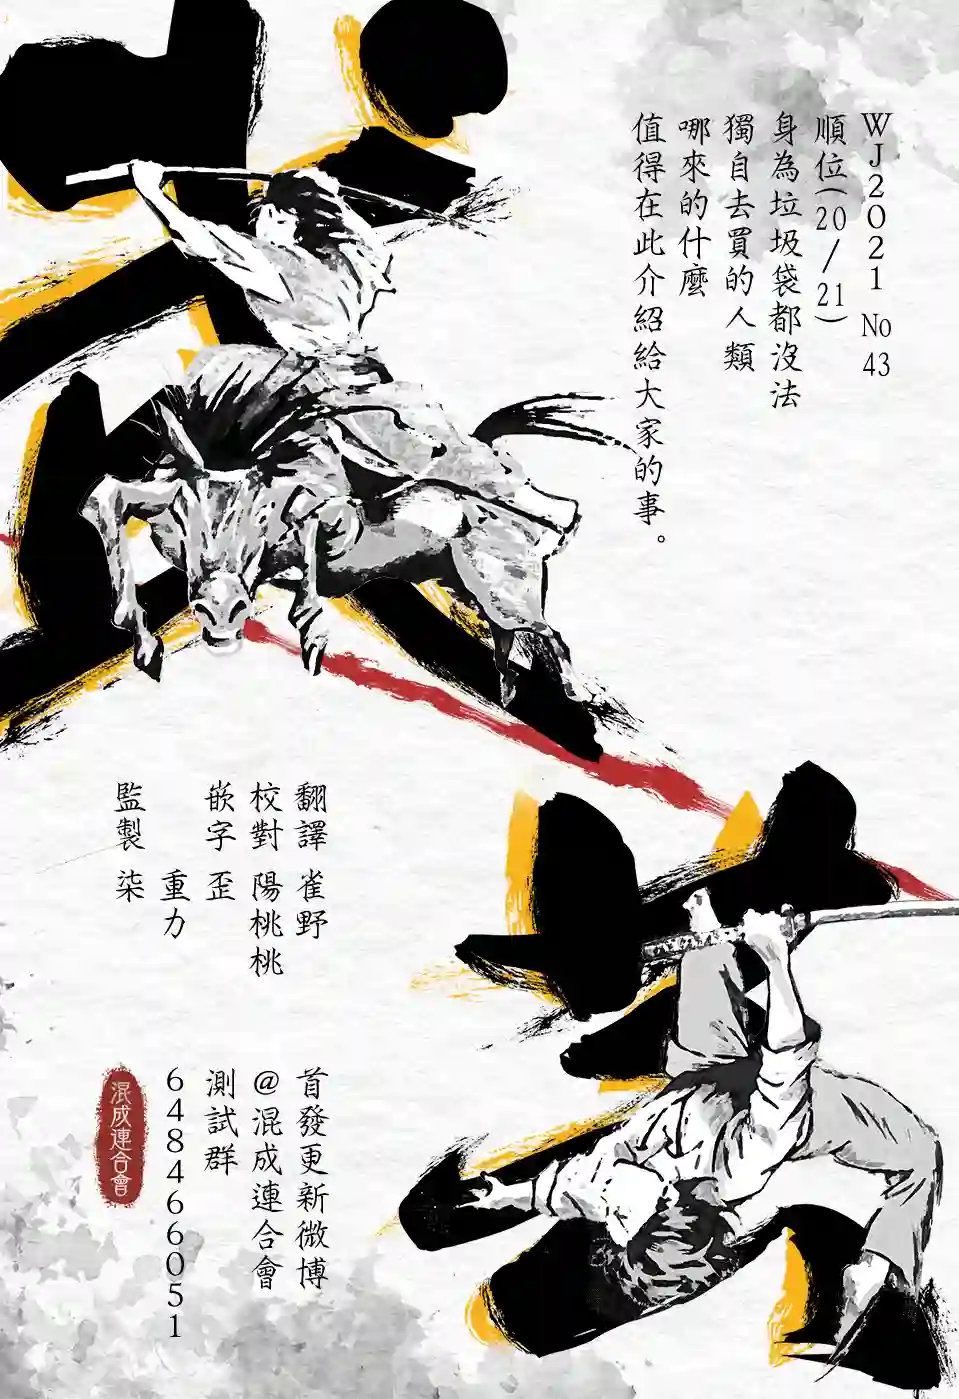 WJ2021 No 43
順位(20/21)
身為垃圾袋都沒法
獨自去買的人類
哪來的什麼
值得在此介紹給大家的事。
翻譯 雀野
校對 陽桃桃
嵌字 歪
重力
監製 柒
首發更新微博
@混成連合會
測試群
648466051
混成連合會